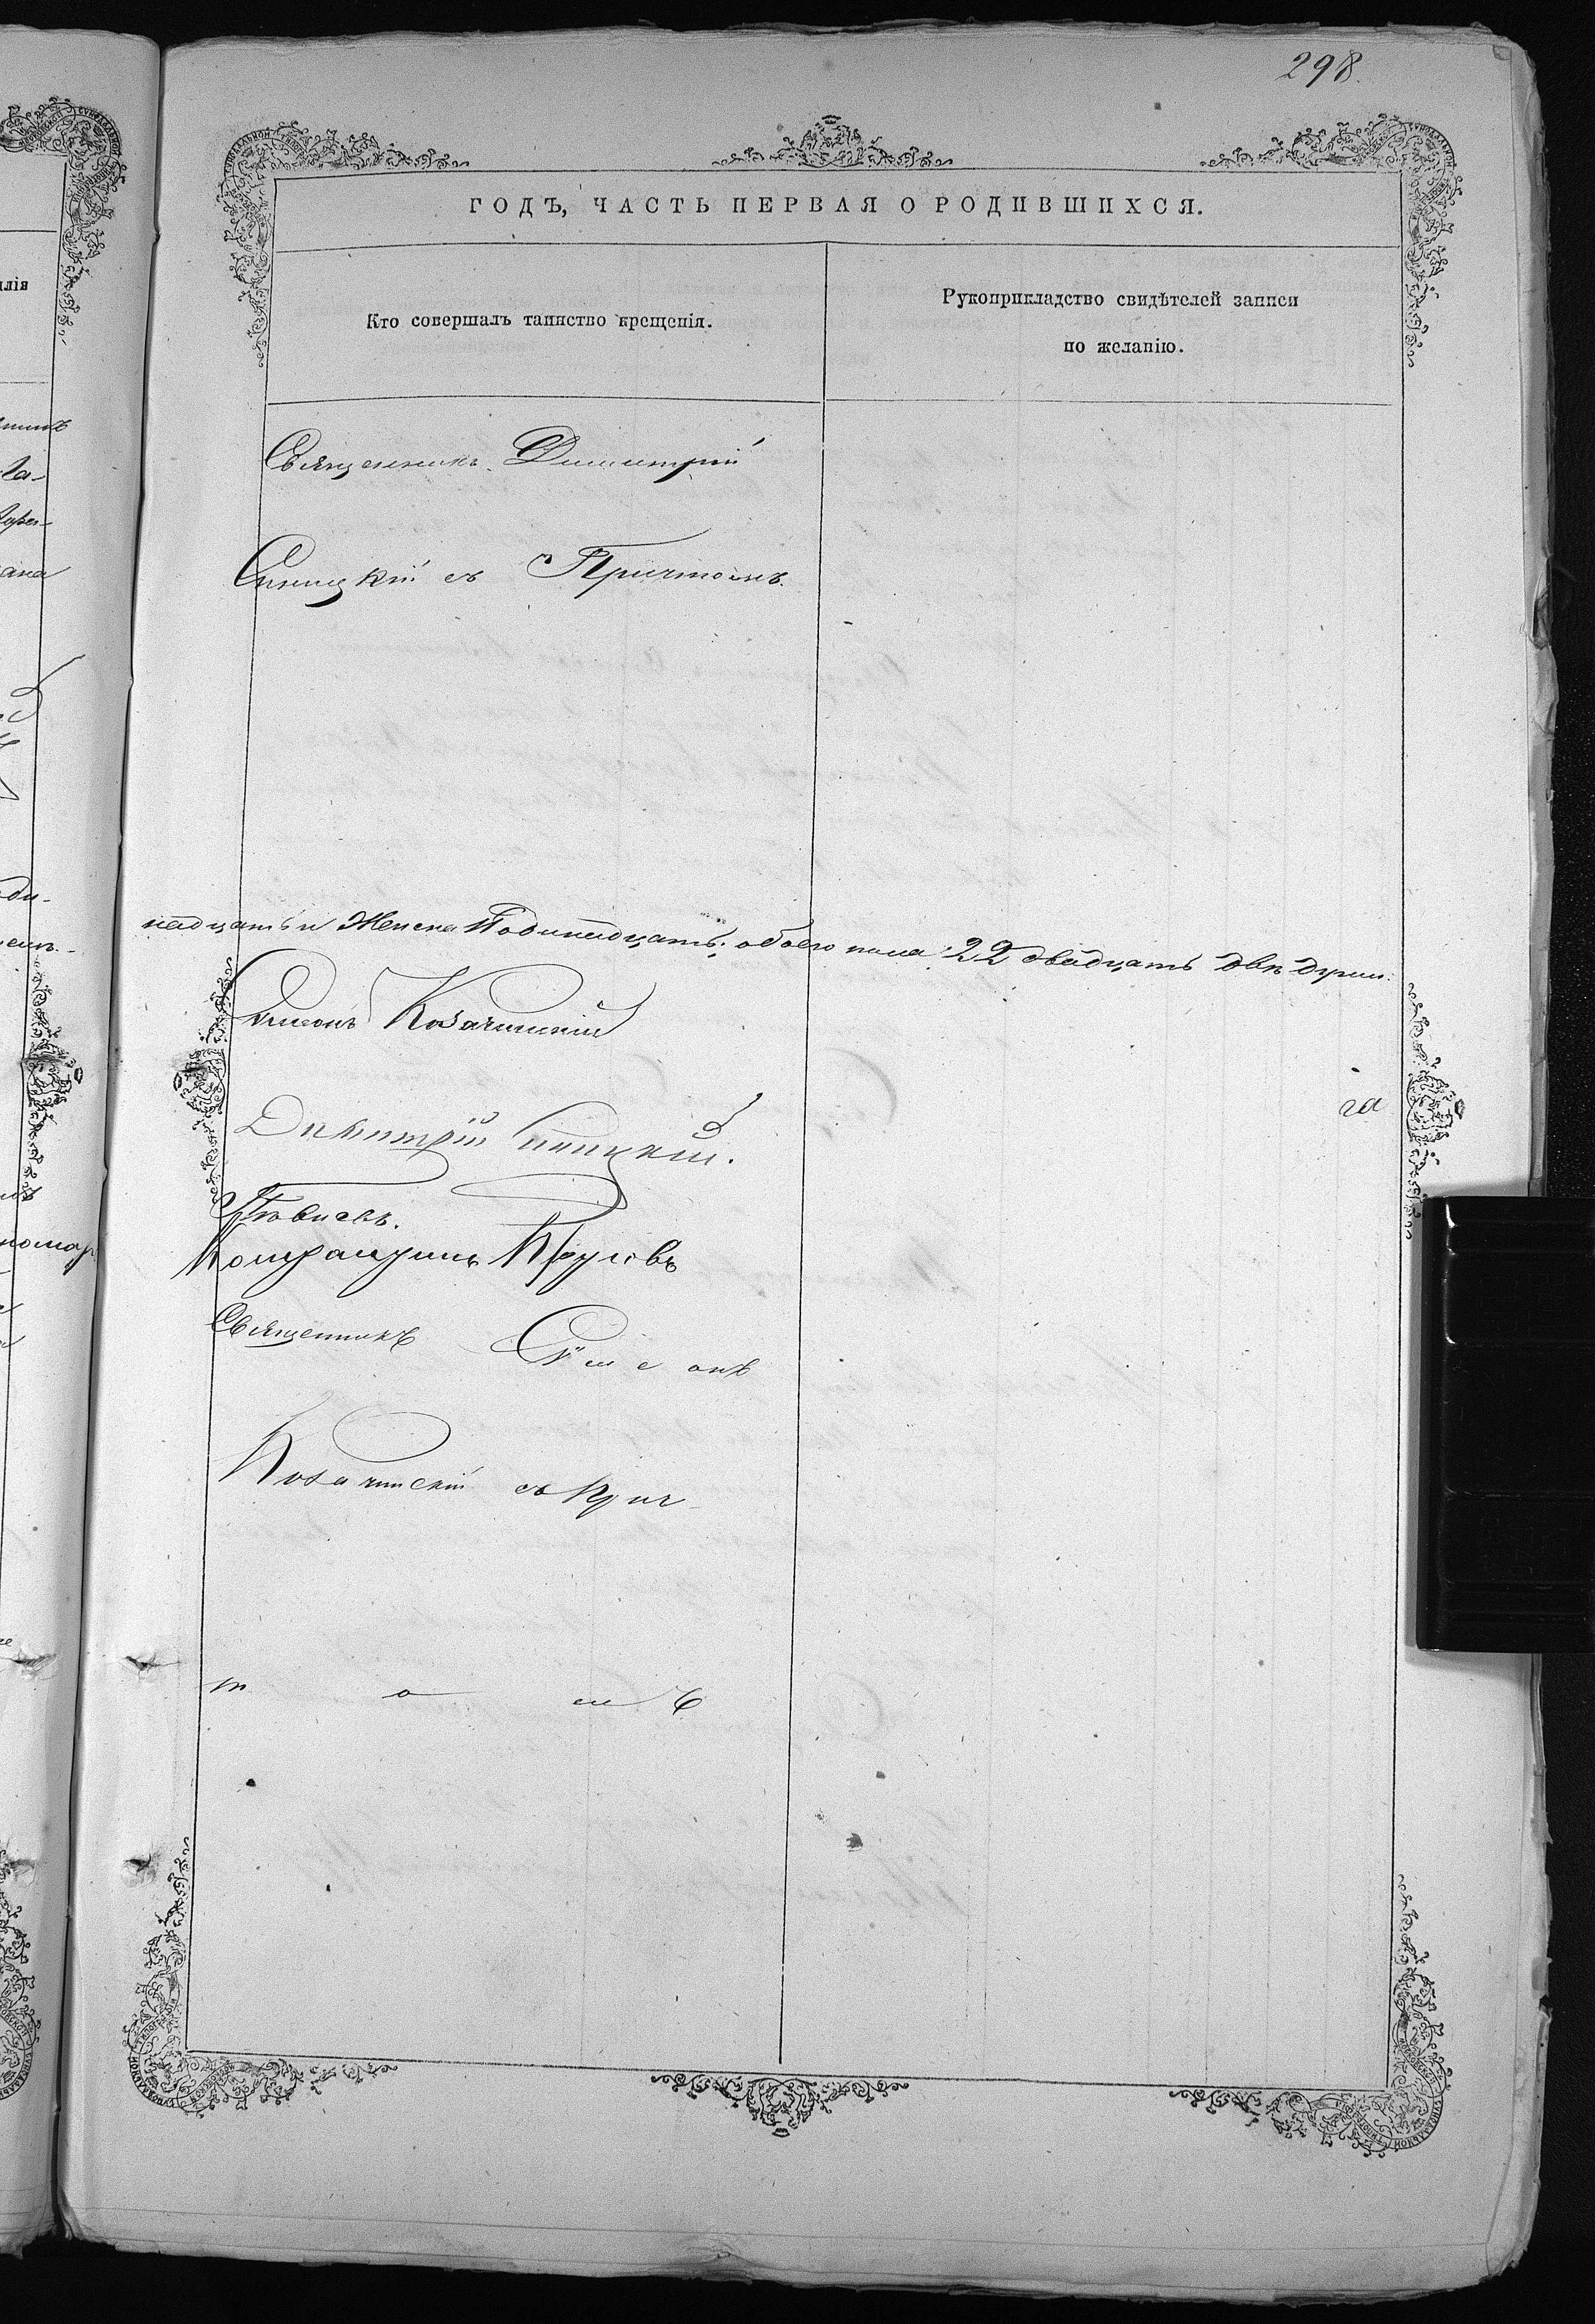 298.
ГОДЪ, ЧАСТЬ ПЕРВАЯ О РОДИВШИХСЯ.
Кто совершалъ таинство крещенія.
Рукоприкладство свидѣтелей записи
по желанію.
Священникъ Димитрій
Синицкій съ Причтомъ.
надцать и Женска 11 одинадцать; обоего пола 22 двадцать двѣ души.
Симеонъ Козачинскій
Димитрій Синицкій.
га
Священникъ Симеонъ
Козачинскій съ прич
т о м ъ